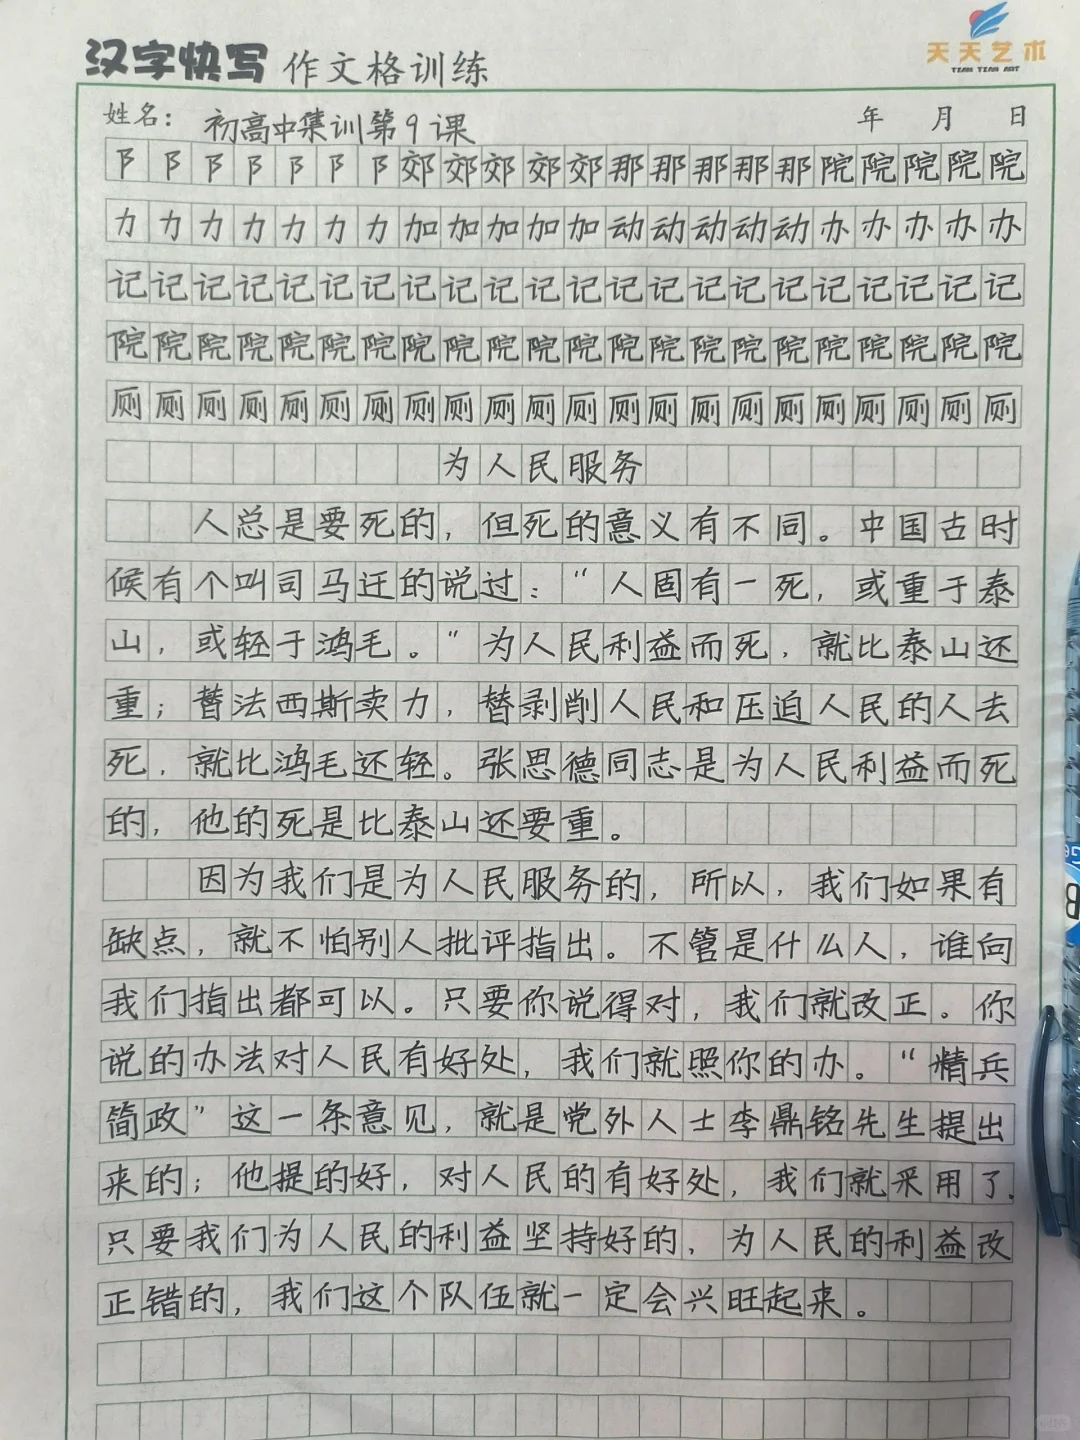 汉字快写 作文格训练
天天艺术
TIAN TIAN ART
姓名：初高中集训第9课 年 月 日
阝阝阝阝阝阝阝郊郊郊郊郊那那那那那院院院院院
力力力力力力力加加加加加动动动动动办办办办办
记记记记记记记记记记记记记记记记记记记记记记
院院院院院院院院院院院院院院院院院院院院院院
厕厕厕厕厕厕厕厕厕厕厕厕厕厕厕厕厕厕厕厕厕厕
为人民服务
人总是要死的，但死的意义有不同。中国古时
候有个叫司马迁的说过：“人固有一死，或重于泰
山，或轻于鸿毛。”为人民利益而死，就比泰山还
重；替法西斯卖力，替剥削人民和压迫人民的人去
死，就比鸿毛还轻。张思德同志是为人民利益而死
的，他的死是比泰山还要重。
因为我们是为人民服务的，所以，我们如果有
缺点，就不怕别人批评指出。不管是什么人，谁向
我们指出都可以。只要你说得对，我们就改正。你
说的办法对人民有好处，我们就照你的办。“精兵
简政”这一条意见，就是党外人士李鼎铭先生提出
来的；他提的好，对人民的有好处，我们就采用了.
只要我们为人民的利益坚持好的，为人民的利益改
正错的，我们这个队伍就一定会兴旺起来。